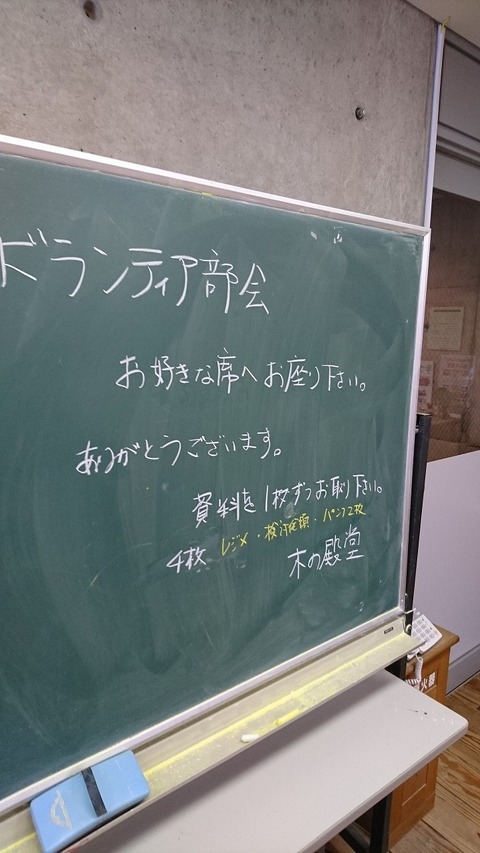 ドランティア部会
お好きな席へお座り下さい。
ありがとうございます。
資料を1枚ずつお取り下さい。
レジメ・検討依頼・パンフ2枚
4枚
木の殿堂
火器